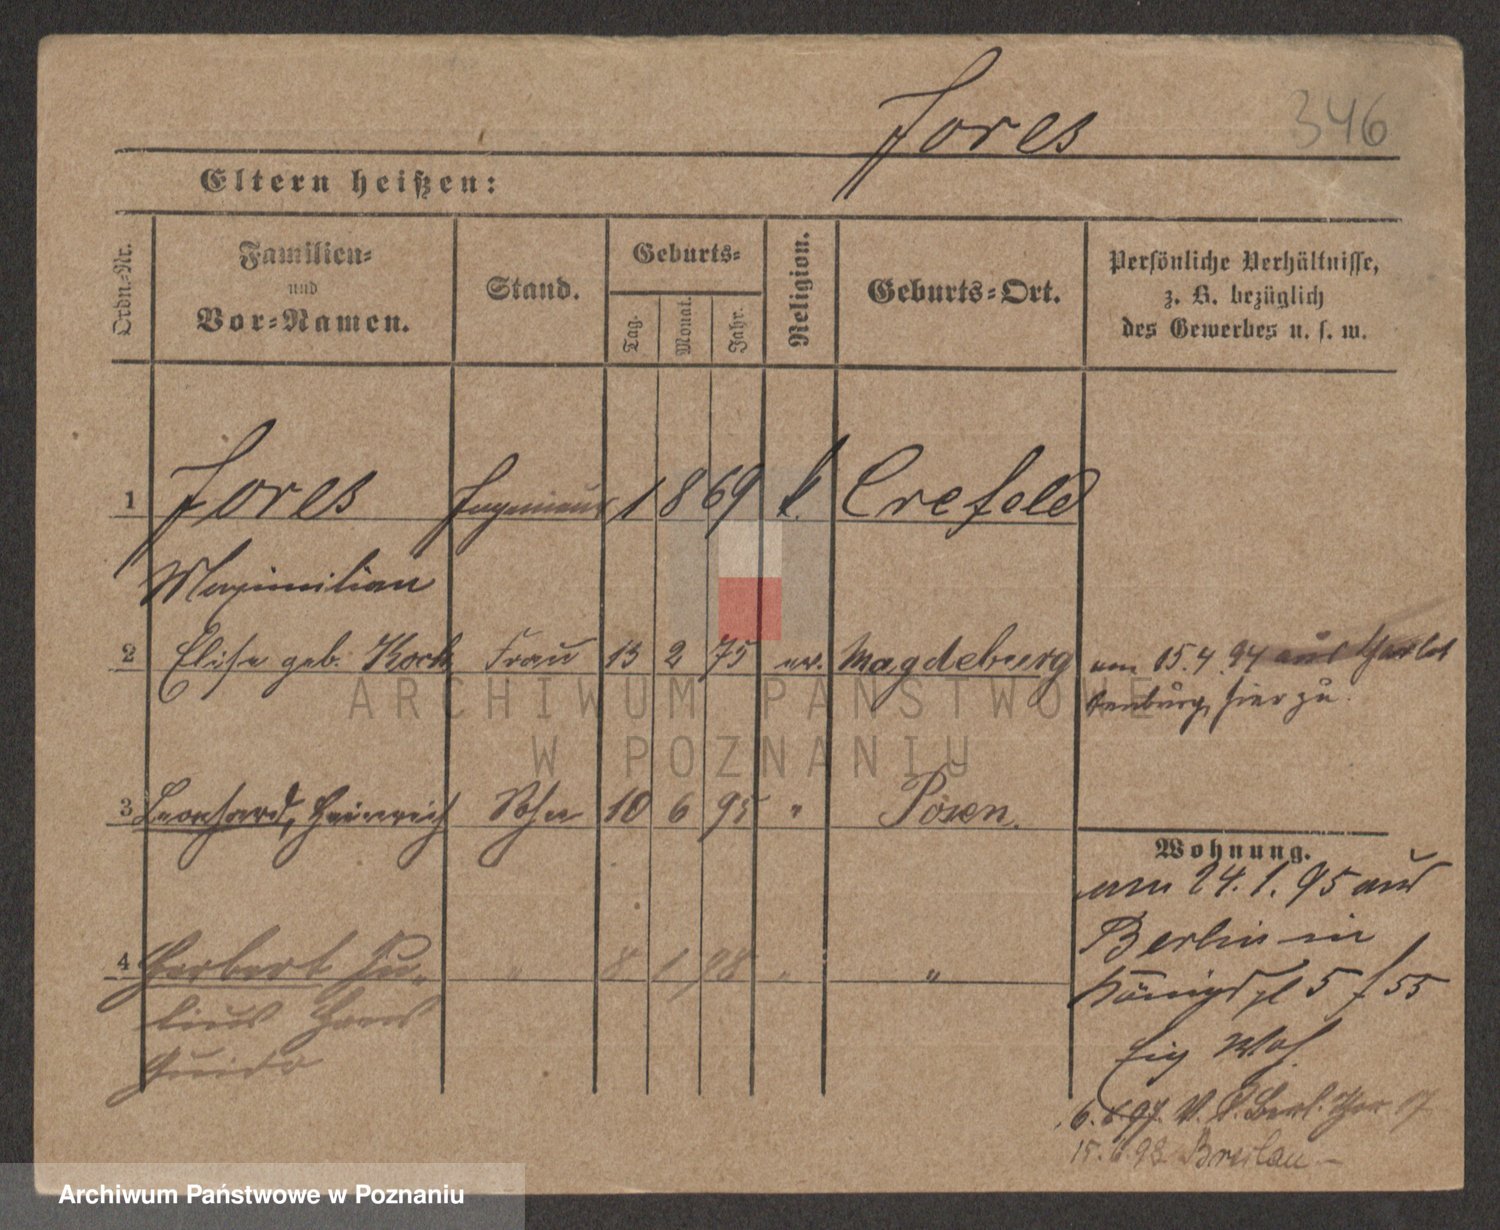 Fores
346
Eltern heißen:
Ordn.-Nr.
Familien-
und
Vor-Namen.
Stand.
Geburts-
Tag.
Monat.
Jahr.
Religion.
Geburts-Ort.
Persönliche Verhältnisse,
z. B. bezüglich
des Gewerbes u. s. w.
1 Fores Ingenieur 1 8 69 k. Crefeld
Maximilian
2 Elise geb. Koch Frau 13 2 75 ev. Magdeburg
am 15.4.94 aus Charlot
tenburg hier zu.
3 Leonhard, Heinrich Sohn 10 6 95 " Posen.
Wohnung.
am 24.1.95 aus
Berlin in
Königspl 5 f 55
Eig Woh
4 Herbert Ju- " 8 1 98 " "
lius Hans
Guido
6.6.97. V. Berl. Thor 17
15.6.98 Breslau –
ARCHIWUM PAŃSTWOWE
W POZNANIU
Archiwum Państwowe w Poznaniu